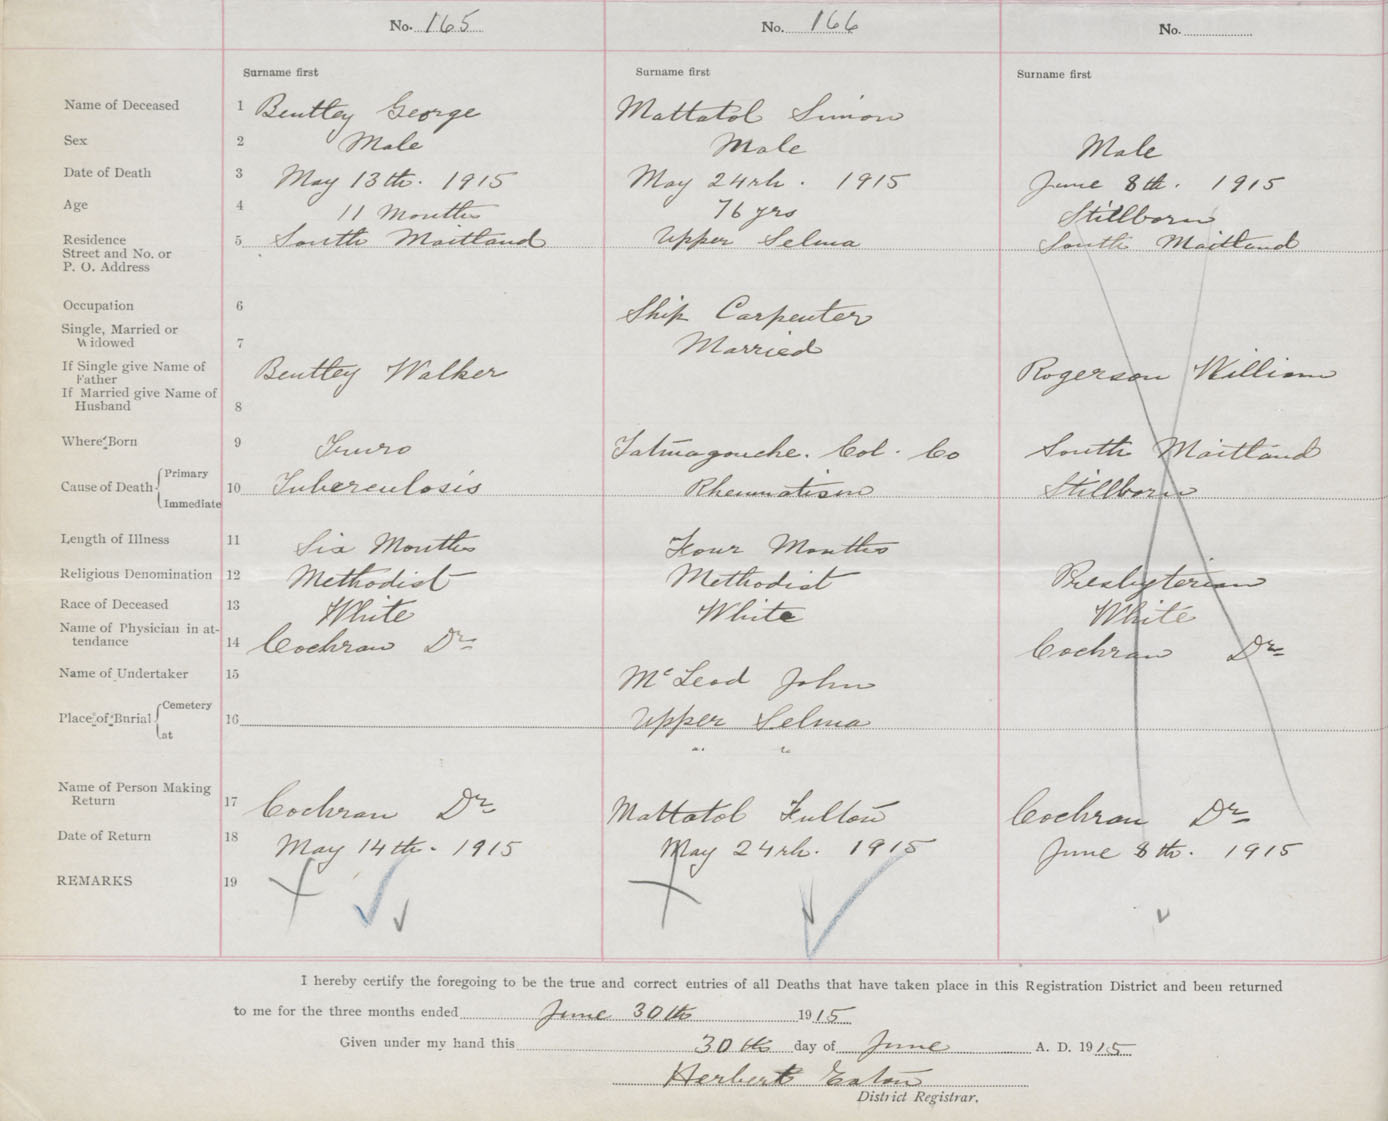 No. 165 No. 166 No.
Surname first Surname first Surname first
Name of Deceased 1 Bentley George Mattatol Simon
Sex 2 Male Male Male
Date of Death 3 May 13th. 1915 May 24th. 1915 June 8th. 1915
Age 4 11 Months 76 yrs Stillborn
Residence 5 South Maitland Upper Selma South Maitland
Street and No. or
P. O. Address
Occupation 6 Ship Carpenter
Single, Married or
Widowed 7 Married
If Single give Name of Bentley Walker Rogerson William
Father
If Married give Name of
Husband 8
Where Born 9 Truro Tatmagouche. Col. Co South Maitland
Cause of Death Primary 10 Tuberculosis Rheumatism Stillborn
Immediate
Length of Illness 11 Six Months Four Months
Religious Denomination 12 Methodist Methodist Presbyterian
Race of Deceased 13 White White White
Name of Physician in at-
tendance 14 Cochran Dr Cochran Dr
Name of Undertaker 15 McLeod John
Place of Burial Cemetery 16 Upper Selma
at " "
Name of Person Making
Return 17 Cochran Dr Mattatol Fulton Cochran Dr
Date of Return 18 May 14th. 1915 May 24th. 1915 June 8th. 1915
REMARKS 19
I hereby certify the foregoing to be the true and correct entries of all Deaths that have taken place in this Registration District and been returned
to me for the three months ended June 30th 1915
Given under my hand this 30th day of June A. D. 1915
Herbert Eaton
District Registrar.